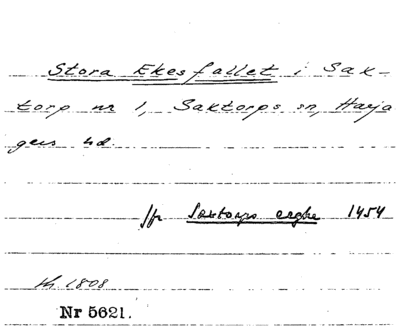 Stora Ekesfallet i Sax-
torp nr 1, Saxtorps sn, Harja
gers hd.
jfr Saxtorps eeghe 1454
Nr 5621.